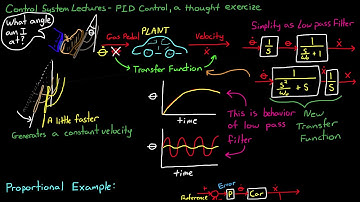 Control System Lectures - PID Control, a thought exercise
What angle
am I
at?
θ
Gas Pedal
PLANT
Velocity
ẋ
Transfer Function
Simplify as low pass Filter
θ
1
S
1
S/ω₀ + 1
ẋ
θ
1
S²/ω₀ + S
ẋ
1
S
New
Transfer
Function
A little faster
Generates a constant velocity
θ
time
This is behavior
of low pass
Filter
θ
time
Proportional Example:
Reference
Error
P
Car